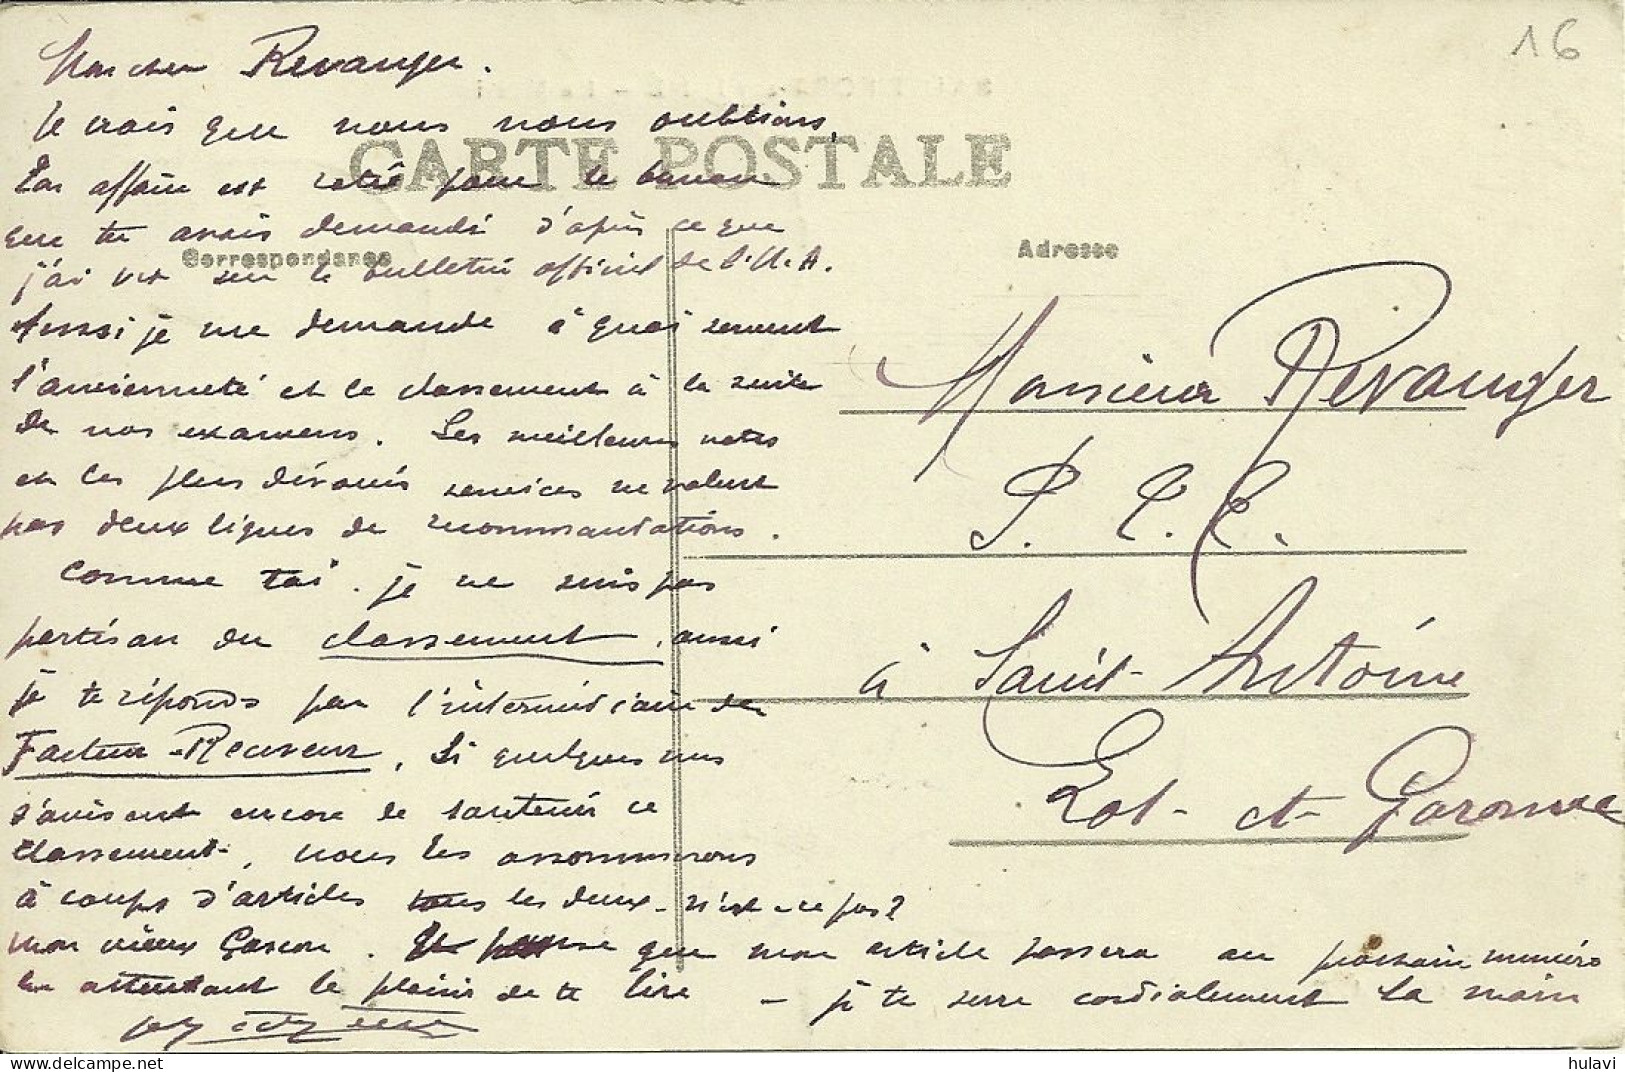 16
Mon cher Revanger.
Je crois que nous nous oublions,
CARTE POSTALE
Ton affaire est ratée pour le bureau
que tu avais demandé d'après ce que
Correspondance
j'ai vu sur le bulletin officiel de l'U.A.
Aussi je me demande à quoi servent
l'ancienneté et le classement à la suite
de nos examens. Les meilleures notes
et les plus dévoués services ne valent
pas deux lignes de recommandations.
Comme toi. je ne suis pas
partisan du classement, aussi
je te réponds par l'intermédiaire du
Facteur-Receveur. Si quelques uns
s'avisent encore de soutenir ce
classement, nous les assommerons
à coups d'articles tous les deux - n'est-ce pas?
mon vieux Gascon. que mon article passera au prochain numéro
En attendant le plaisir de te lire - je te serre cordialement la main
Adresse
Monsieur Revanger
P. E. C.
à Saint-Antoine
Lot-et-Garonne
hulavi